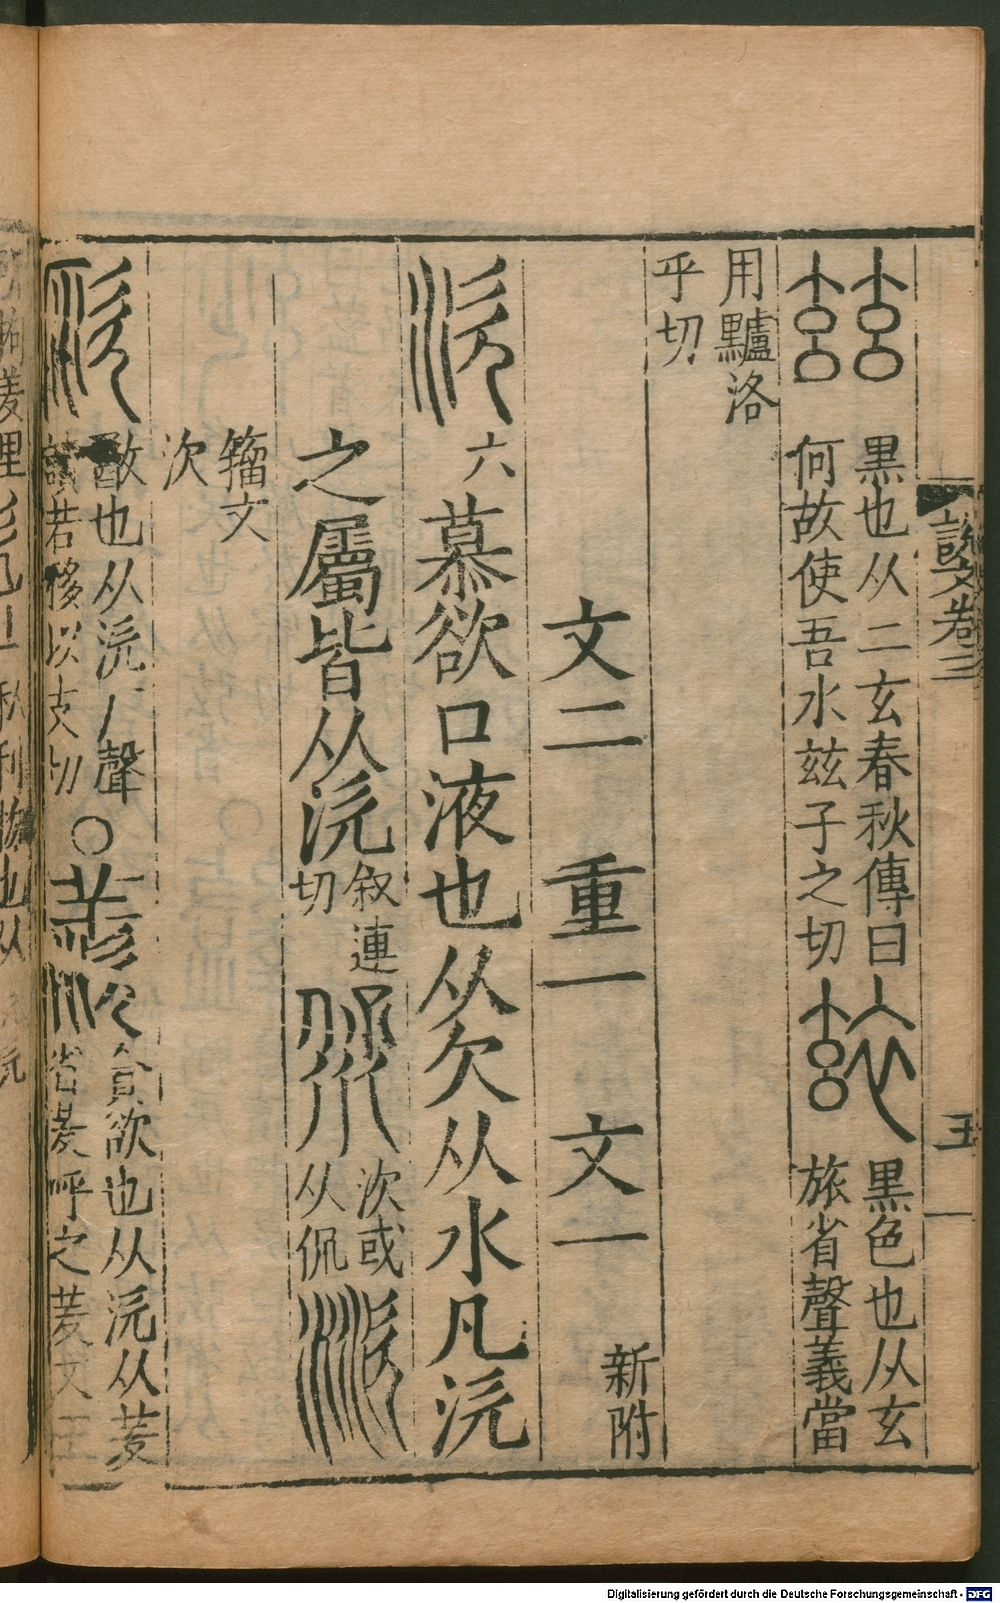 說文卷三
五
黒也从二玄春秋傳曰
何故使吾水兹子之切
黒色也从玄
旅省聲義當
用黸洛
乎切
文二 重一 文一 新附
六
慕欲口液也从欠从水凡㳄
之屬皆从㳄 叙連
切
㳄或
从侃
籀文
次
也从㳄厂聲
讀若移以支切
○
貪欲也从㳄从羑
省羑呼之羑文王
Digitalisierung gefördert durch die Deutsche Forschungsgemeinschaft - DFG